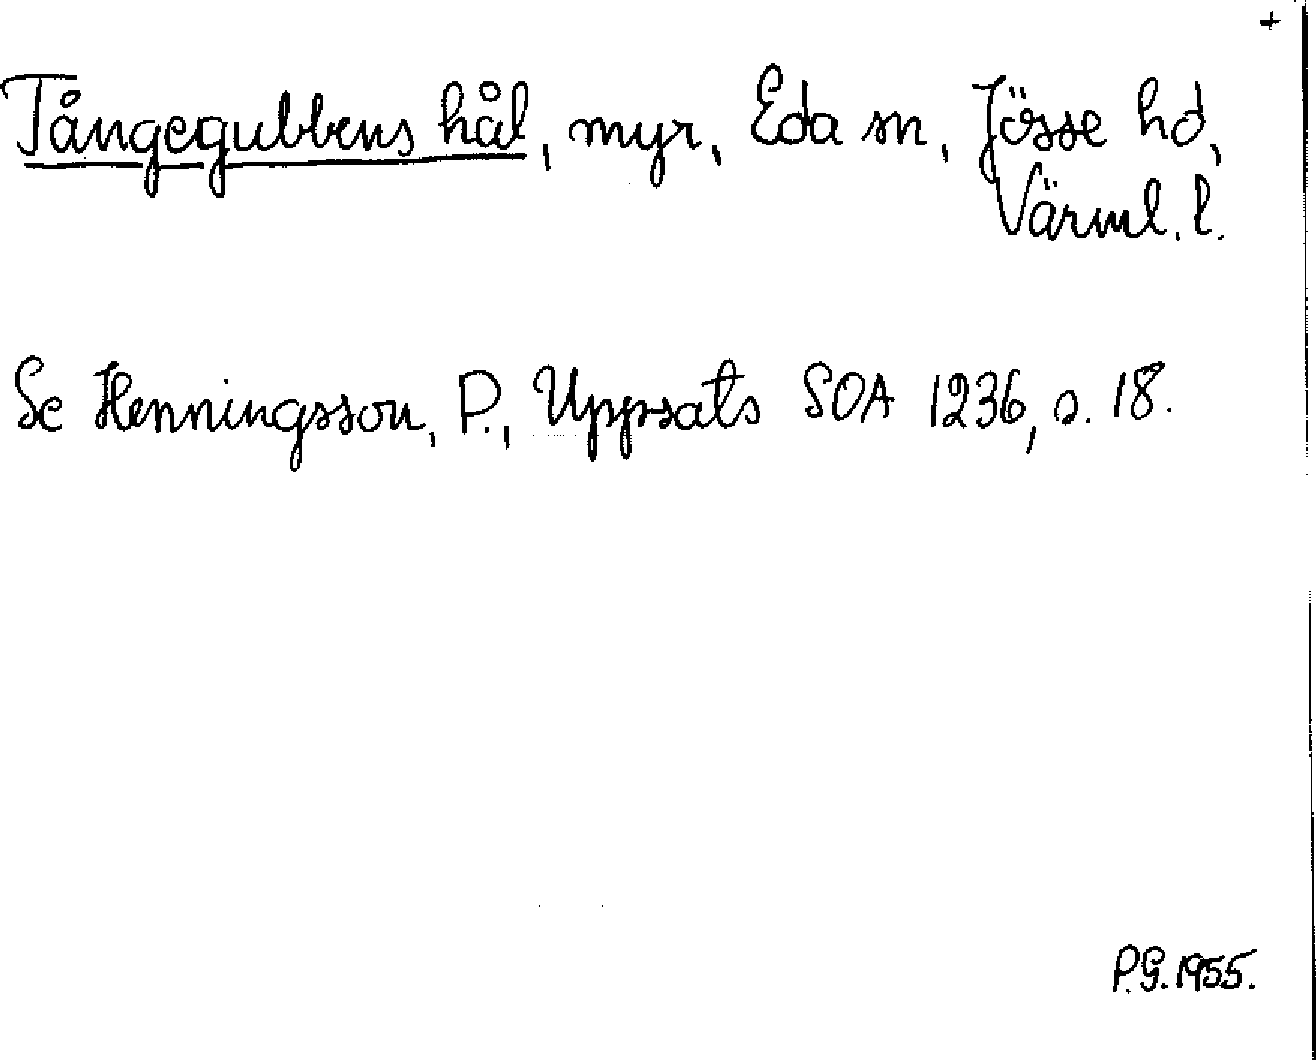 +
Tångegubbens hål, myr, Eda sn, Jösse hd,
Värml. l.
Se Henningsson, P., Uppsats SOA 1236, s. 18.
P.G. 1955.